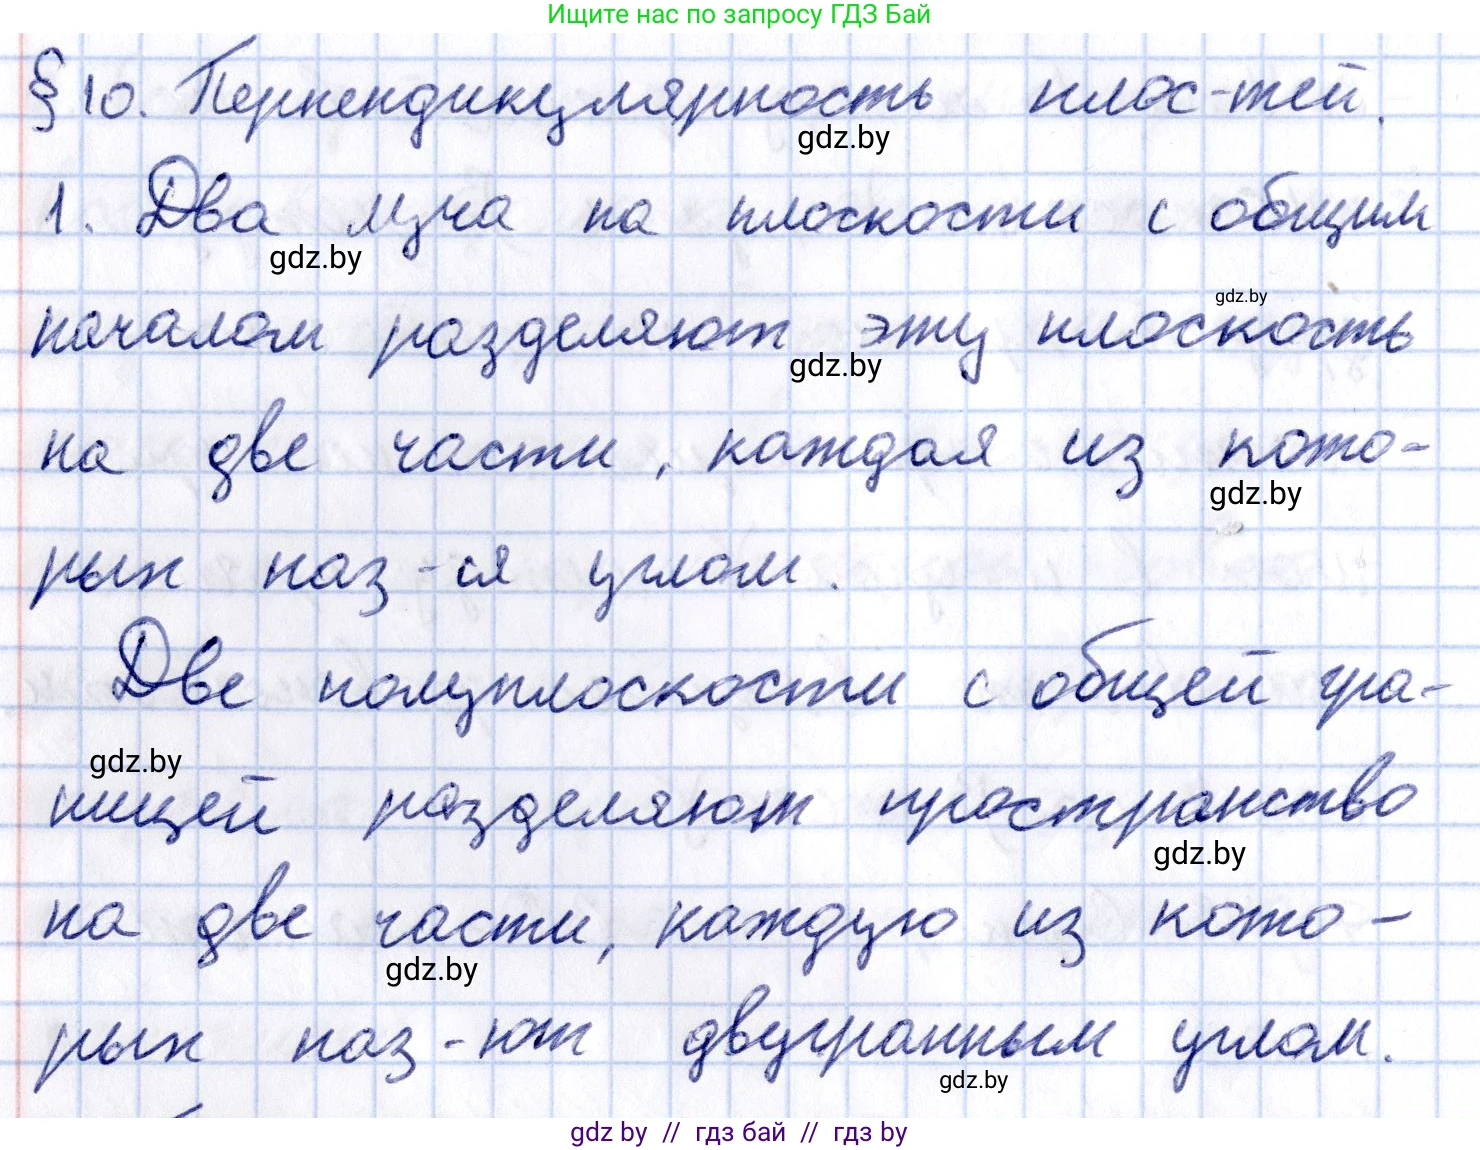 Ищите нас по запросу ГДЗ Бай
§ 10. Перпендикулярность плос-тей.
gdz.by
1. Два луча на плоскости с общим
gdz.by
gdz.by
началом разделяют эту плоскость
gdz.by
на две части, каждая из кото-
gdz.by
рых наз-ся углом.
Две полуплоскости с общей гра-
gdz.by
ницей разделяют пространство
gdz.by
на две части, каждую из кото-
gdz.by
рых наз-ют двугранным углом.
gdz.by
gdz by // гдз бай // гдз by